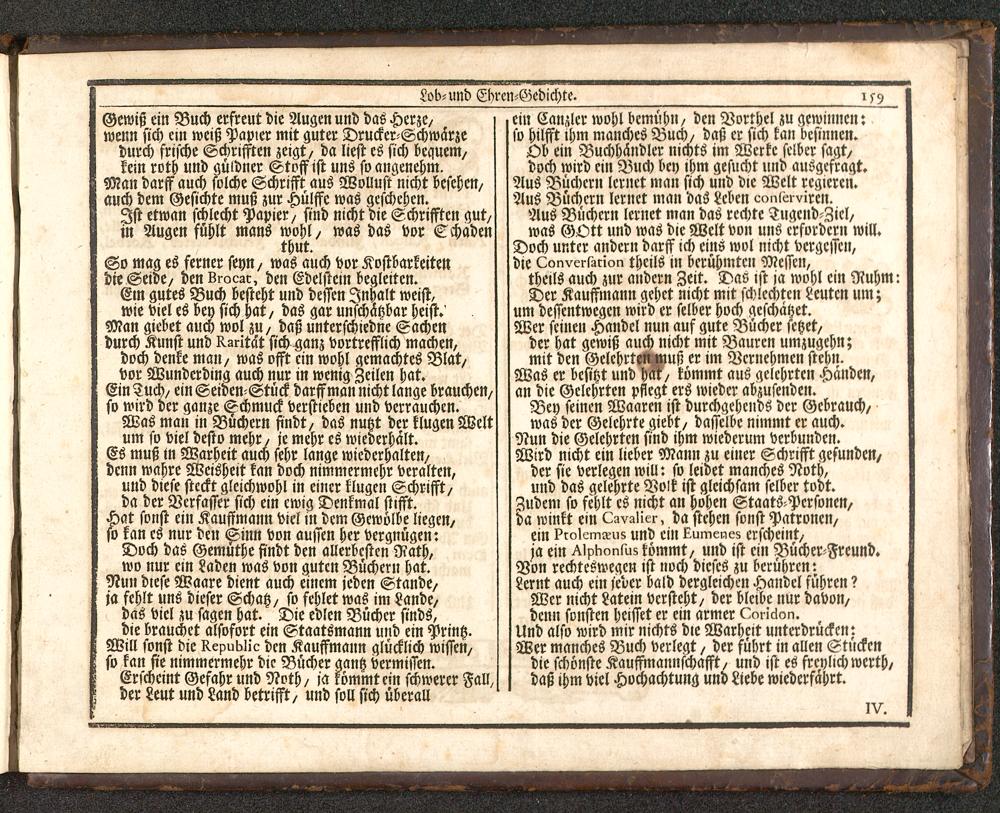 Lob- und Ehren-Gedichte.
159
Gewiß ein Buch erfreut die Augen und das Herze,
wenn sich ein weiß Papier mit guter Drucker-Schwärze
durch frische Schrifften zeigt, da liest es sich bequem,
kein roth und güldner Stoff ist uns so angenehm.
Man darff auch solche Schrift aus Wollust nicht besehen,
auch dem Gesichte muß zur Hülffe was geschehen.
Ist etwan schlecht Papier, sind nicht die Schrifften gut,
in Augen fühlt mans wohl, was das vor Schaden
thut.
So mag es ferner seyn, was auch vor Kostbarkeiten
die Seide, den Brocat, den Edelstein begleiten.
Ein gutes Buch besteht und dessen Inhalt weist,
wie viel es bey sich hat, das gar unschätzbar heist.
Man giebet auch wol zu, daß unterschiedne Sachen
durch Kunst und Rarität sich ganz vortrefflich machen,
doch denke man, was offt ein wohl gemachtes Blat,
vor Wunderding auch nur in wenig Zeilen hat.
Ein Tuch, ein Seiden-Stück darff man nicht lange brauchen,
so wird der ganze Schmuck verstieben und verrauchen.
Was man in Büchern findt, das nutzt der klugen Welt
um so viel desto mehr, je mehr es wiederhält.
Es muß in Warheit auch sehr lange wiederhalten,
denn wahre Weisheit kan doch nimmermehr veralten,
und diese steckt gleichwohl in einer klugen Schrifft,
da der Verfasser sich ein ewig Denkmal stifft.
Hat sonst ein Kauffmann viel in dem Gewölbe liegen,
so kan es nur den Sinn von aussen her vergnügen:
Doch das Gemüthe findt den allerbesten Rath,
wo nur ein Laden was von guten Büchern hat.
Nun diese Waare dient auch einem jeden Stande,
ja fehlt uns dieser Schatz, so fehlet was im Lande,
das viel zu sagen hat. Die edlen Bücher sinds,
die brauchet alsofort ein Staatsmann und ein Printz.
Will sonst die Republic den Kauffmann glücklich wissen,
so kan sie nimmermehr die Bücher gantz vermissen.
Erscheint Gefahr und Noth, ja kömmt ein schwerer Fall,
der Leut und Land betrifft, und soll sich überall
ein Canzler wohl bemühn, den Vorthel zu gewinnen:
so hilfft ihm manches Buch, daß er sich kan besinnen.
Ob ein Buchhändler nichts im Werke selber sagt,
doch wird ein Buch bey ihm gesucht und ausgefragt.
Aus Büchern lernet man sich und die Welt regieren.
Aus Büchern lernet man das Leben conserviren.
Aus Büchern lernet man das rechte Tugend-Ziel,
was GOtt und was die Welt von uns erfordern will.
Doch unter andern darff ich eins wol nicht vergessen,
die Conversation theils in berühmten Messen,
theils auch zur andern Zeit. Das ist ja wohl ein Ruhm:
Der Kauffmann gehet nicht mit schlechten Leuten um;
um dessentwegen wird er selber hoch geschätzet.
Wer seinen Handel nun auf gute Bücher setzet,
der hat gewiß auch nicht mit Bauren umzugehn;
mit den Gelehrten muß er im Vernehmen stehn.
Was er besitzt und hat, kömmt aus gelehrten Händen,
an die Gelehrten pflegt ers wieder abzusenden.
Bey seinen Waaren ist durchgehends der Gebrauch,
was der Gelehrte giebt, dasselbe nimmt er auch.
Nun die Gelehrten sind ihm wiederum verbunden.
Wird nicht ein lieber Mann zu einer Schrifft gefunden,
der sie verlegen will: so leidet manches Noth,
und das gelehrte Volk ist gleichsam selber todt.
Zudem so fehlt es nicht an hohen Staats-Personen,
da winkt ein Cavalier, da stehen sonst Patronen,
ein Ptolemæus und ein Eumenes erscheint,
ja ein Alphonsus kömmt, und ist ein Bücher-Freund.
Von rechtswegen ist noch dieses zu berühren:
Lernt auch ein jeder bald dergleichen Handel führen?
Wer nicht Latein versteht, der bleibe nur davon,
denn sonsten heisset er ein armer Coridon.
Und also wird mir nichts die Warheit unterdrücken:
Wer manches Buch verlegt, der führt in allen Stücken
die schönste Kauffmannschafft, und ist es freylich werth,
daß ihm viel Hochachtung und Liebe wiederfährt.
IV.